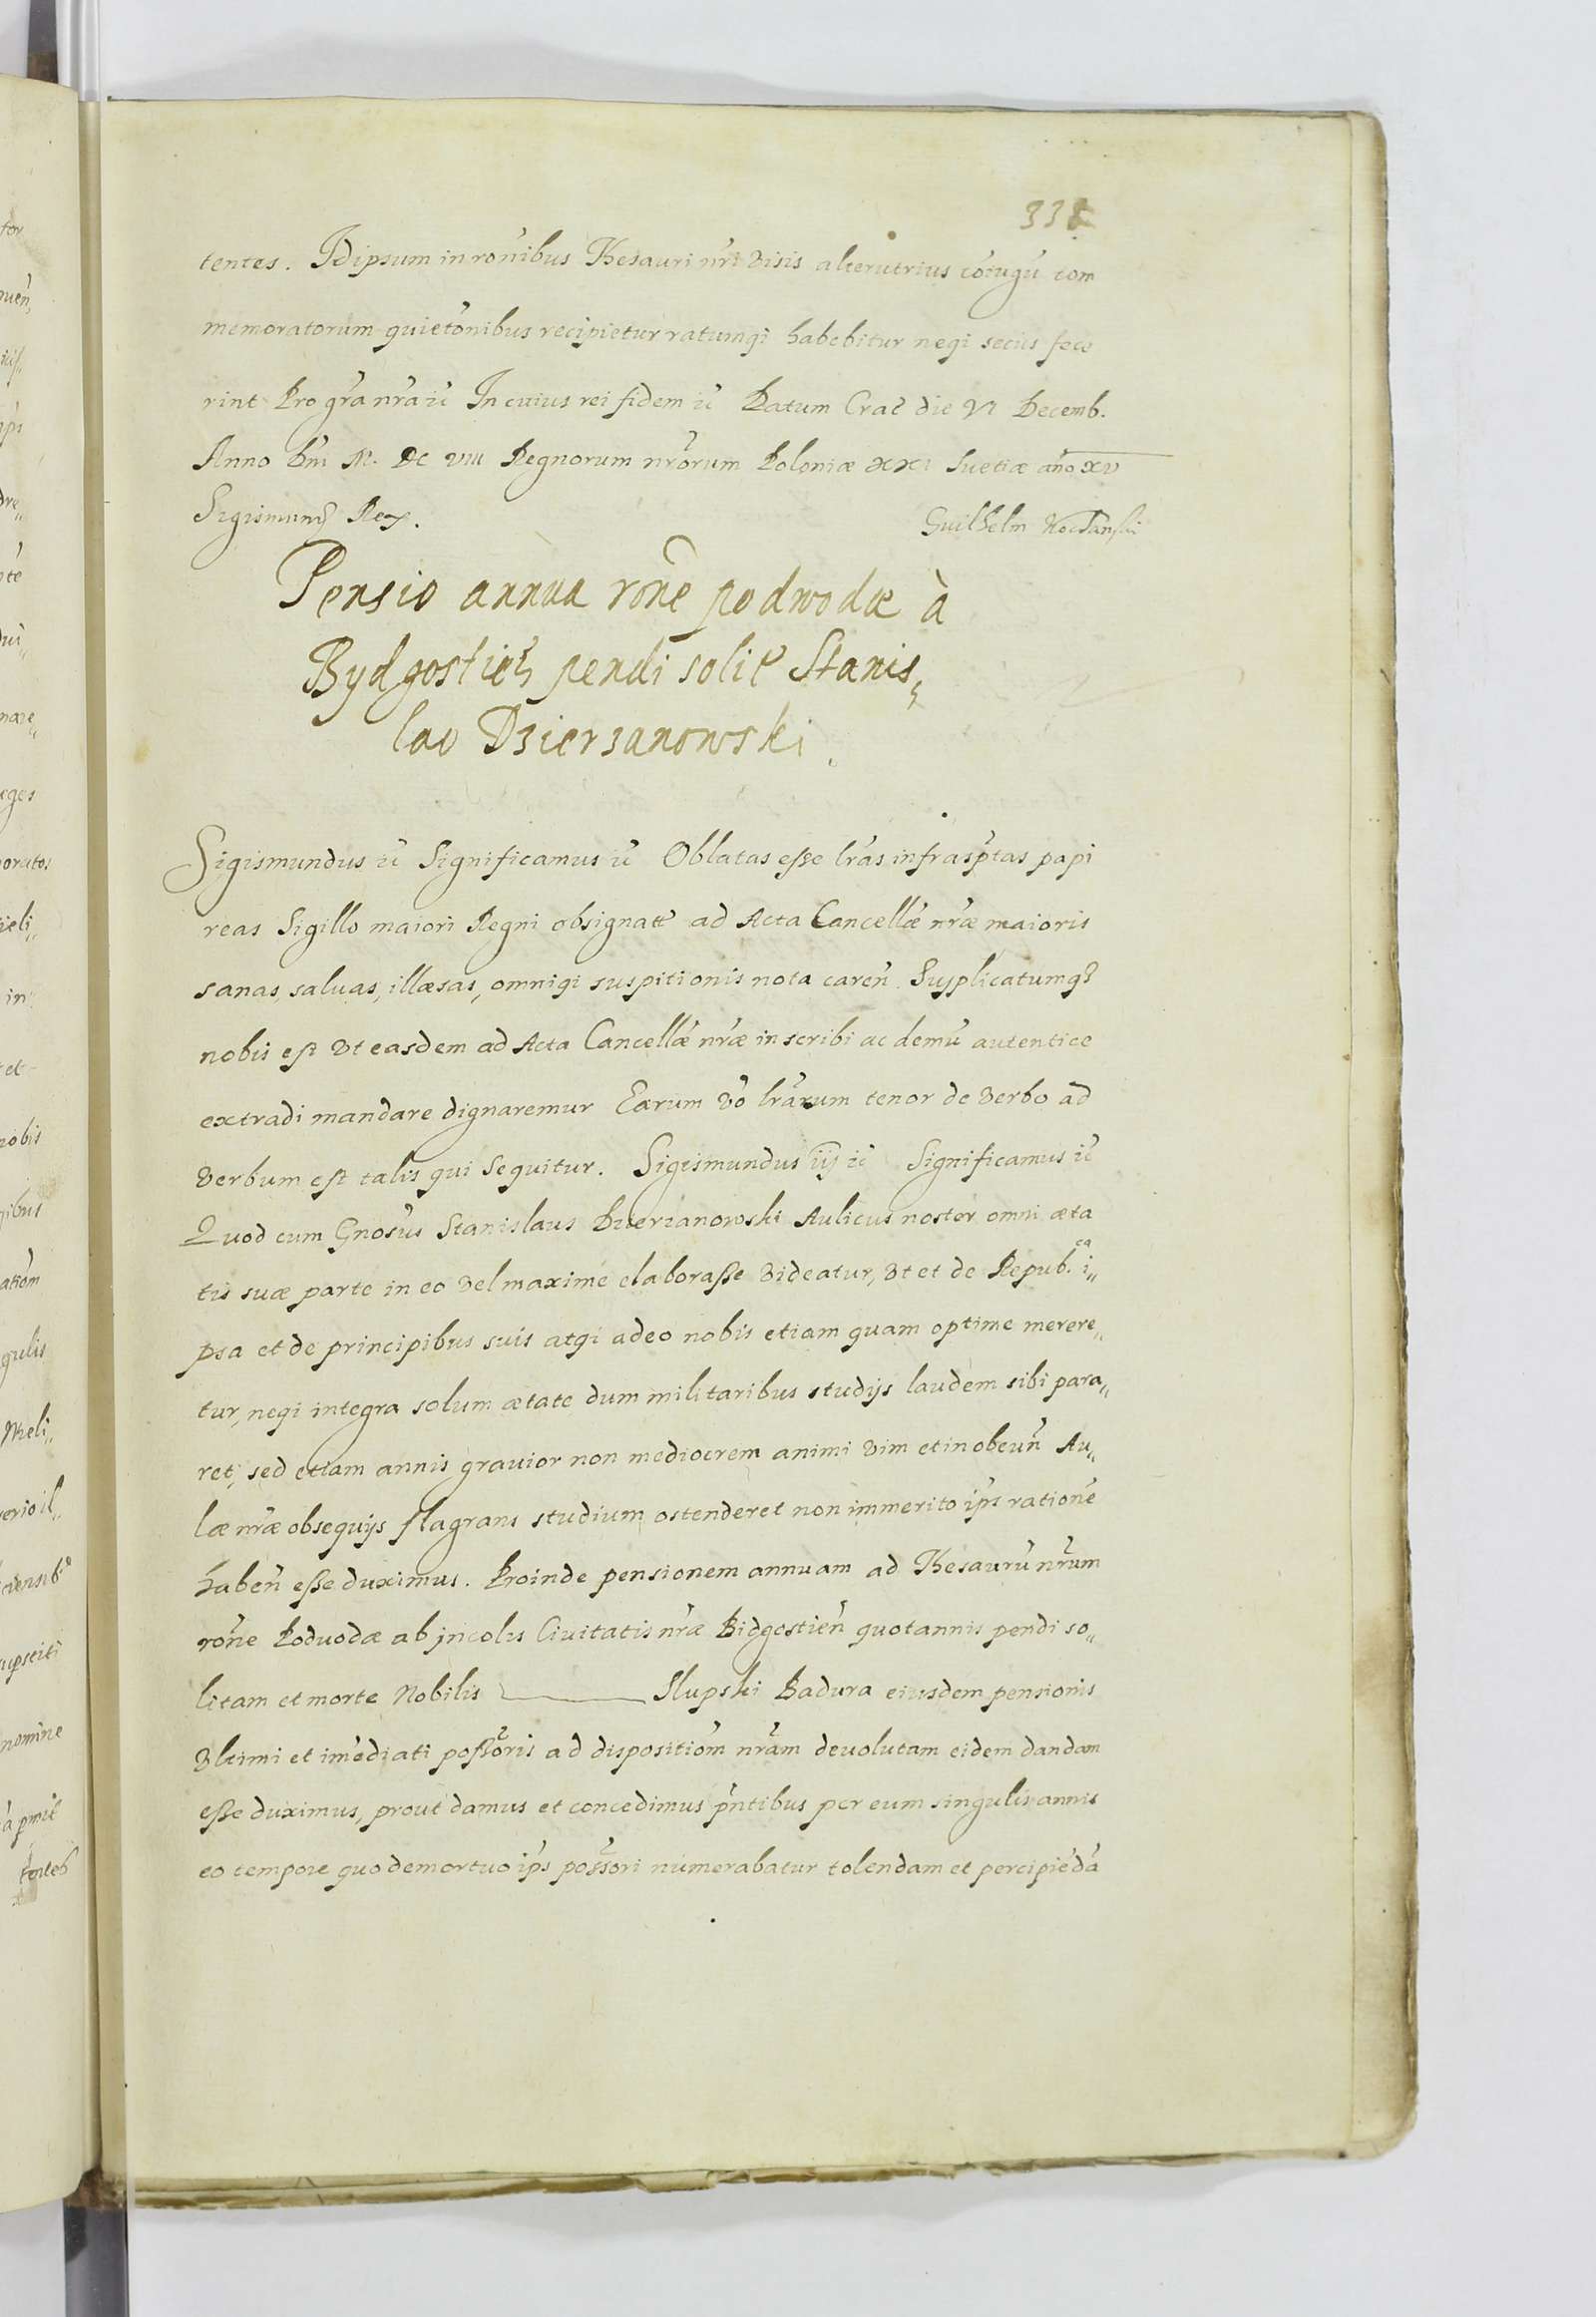 338
tentes. Idipsum in ron̄ibus Thesauri nr̄i visis alterutrius cōiugū com
memoratorum quietōnibus recipietur ratumqȝ habebitur neqȝ secus fece
rint Pro gr̄a nr̄a ıc̄ In cuius rei fidem ıc̄ Datum Crac̄ die VI Decemb.
Anno Dn̄i M. DC VIII Regnorum nr̄orum Poloniæ XXI Suetiæ año XV
Sigismunḍ Rex.
Guilhelm Kochański
Pensio annua rōne podwodæ à
Bydgostień pendi solit̄ Stanis„
lao Dzierzanowski.
Sigismundus ıc̄ Significamus ıc̄ Oblatas esse lr̄as infrasp̄tas papi
reas Sigillo maiori Regni obsignat̄ ad Acta Cancellǣ nr̄æ maioris
sanas, saluas, illæsas, omniqȝ suspitionis nota careñ. Supplicatumqȝ
nobis est vt easdem ad Acta Cancellǣ nr̄æ inscribi ac demū autentice
extradi mandare dignaremur Earum vō lr̄arum tenor de verbo ad
verbum est talis qui sequitur. Sigismundus iij ıc̄ Significamus ıc̄
Quod cum Gnōsus Stanislaus Dzierzanowski Aulicus noster omni æta
tis suæ parte in eo vel maxime elaborasse videatur, vt et de Repub.ca i„
psa et de principibus suis atqȝ adeo nobis etiam quam optime merere„
tur, neqȝ integra solum ætate dum militaribus studijs laudem sibi para„
ret, sed etiam annis grauior non mediocrem animi vim et in obeuñ Au„
læ nr̄æ obsequijs flagrans studium ostenderet non immerito ip̄s rationē
habeñ esse duximus. Proinde pensionem annuam ad Thesaurū nr̄um
rōne Poduodæ ab jncolis Ciuitatis nr̄æ Bidgostień quotannis pendi so„
litam et morte Nobilis ——— Slupski Badura eiusdem pensionis
vltimi et im̄ediati poss̄oris ad dispositiōm nr̄am deuolutam eidem dandam
esse duximus, prout damus et concedimus p̄ntibus per eum singulis annis
eo tempore quo demortuo ip̄s poss̄ori numerabatur tolendam et percipiēdā